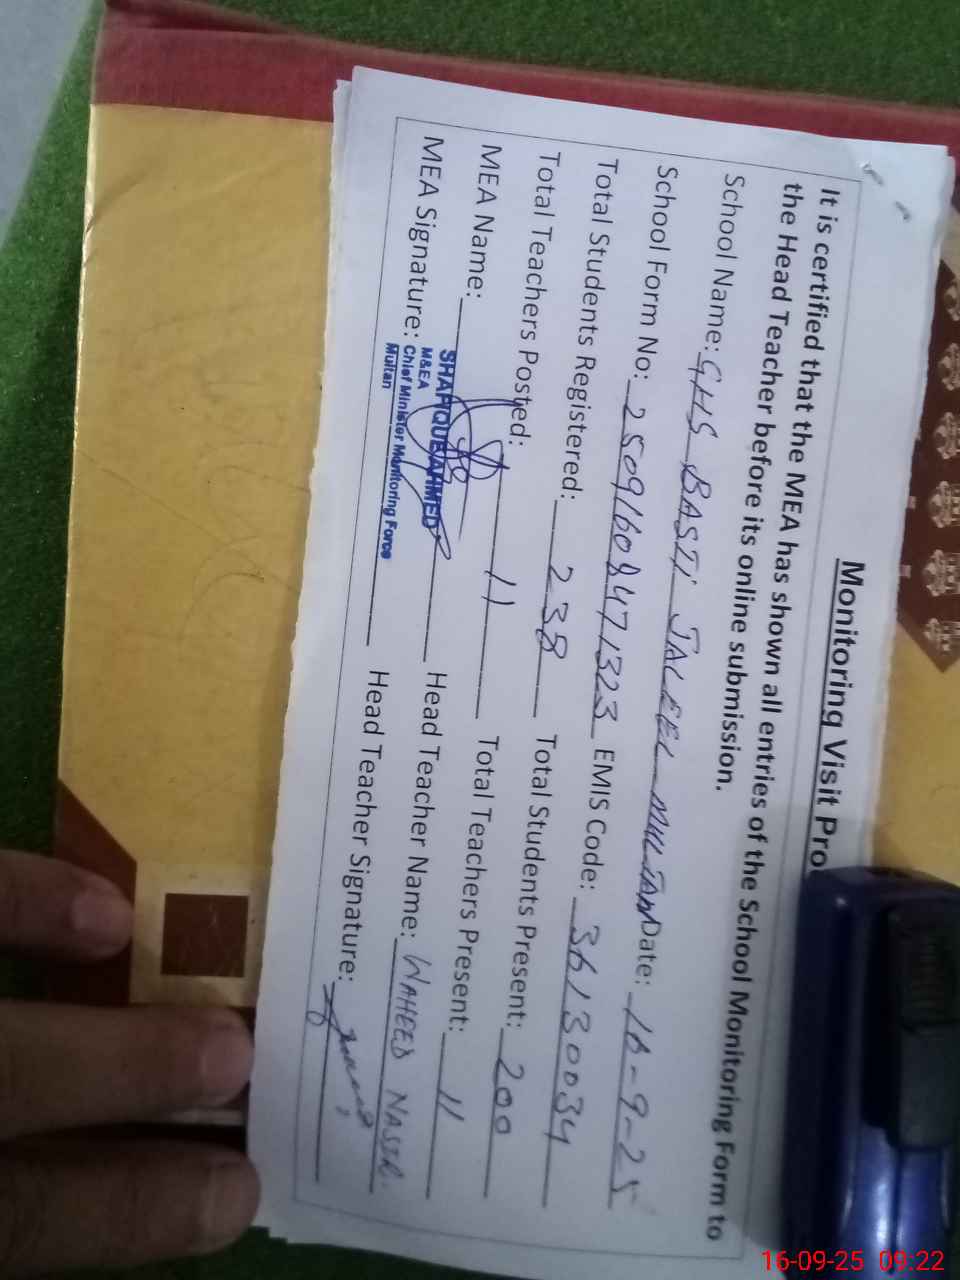 Monitoring Visit Pro
It is certified that the MEA has shown all entries of the School Monitoring Form to
the Head Teacher before its online submission.
School Name: GHS BASTI JALEEL MULTAN Date: 16-9-25
School Form No: 25091608471323 EMIS Code: 36130034
Total Students Registered: 238 Total Students Present: 200
Total Teachers Posted: 11 Total Teachers Present: 11
MEA Name: SHAFIQUE AHMED Head Teacher Name: WAHEED NASIR
M&EA
MEA Signature: Chief Minister Monitoring Force Head Teacher Signature:
Multan
16-09-25 09:22